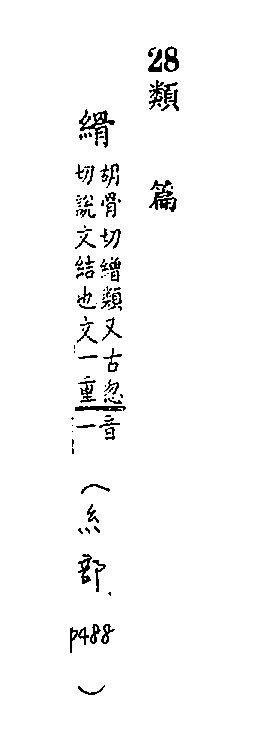 28類篇
縎
胡骨切繒類又古忽
切說文結也文一重音一
(糸部、p488)